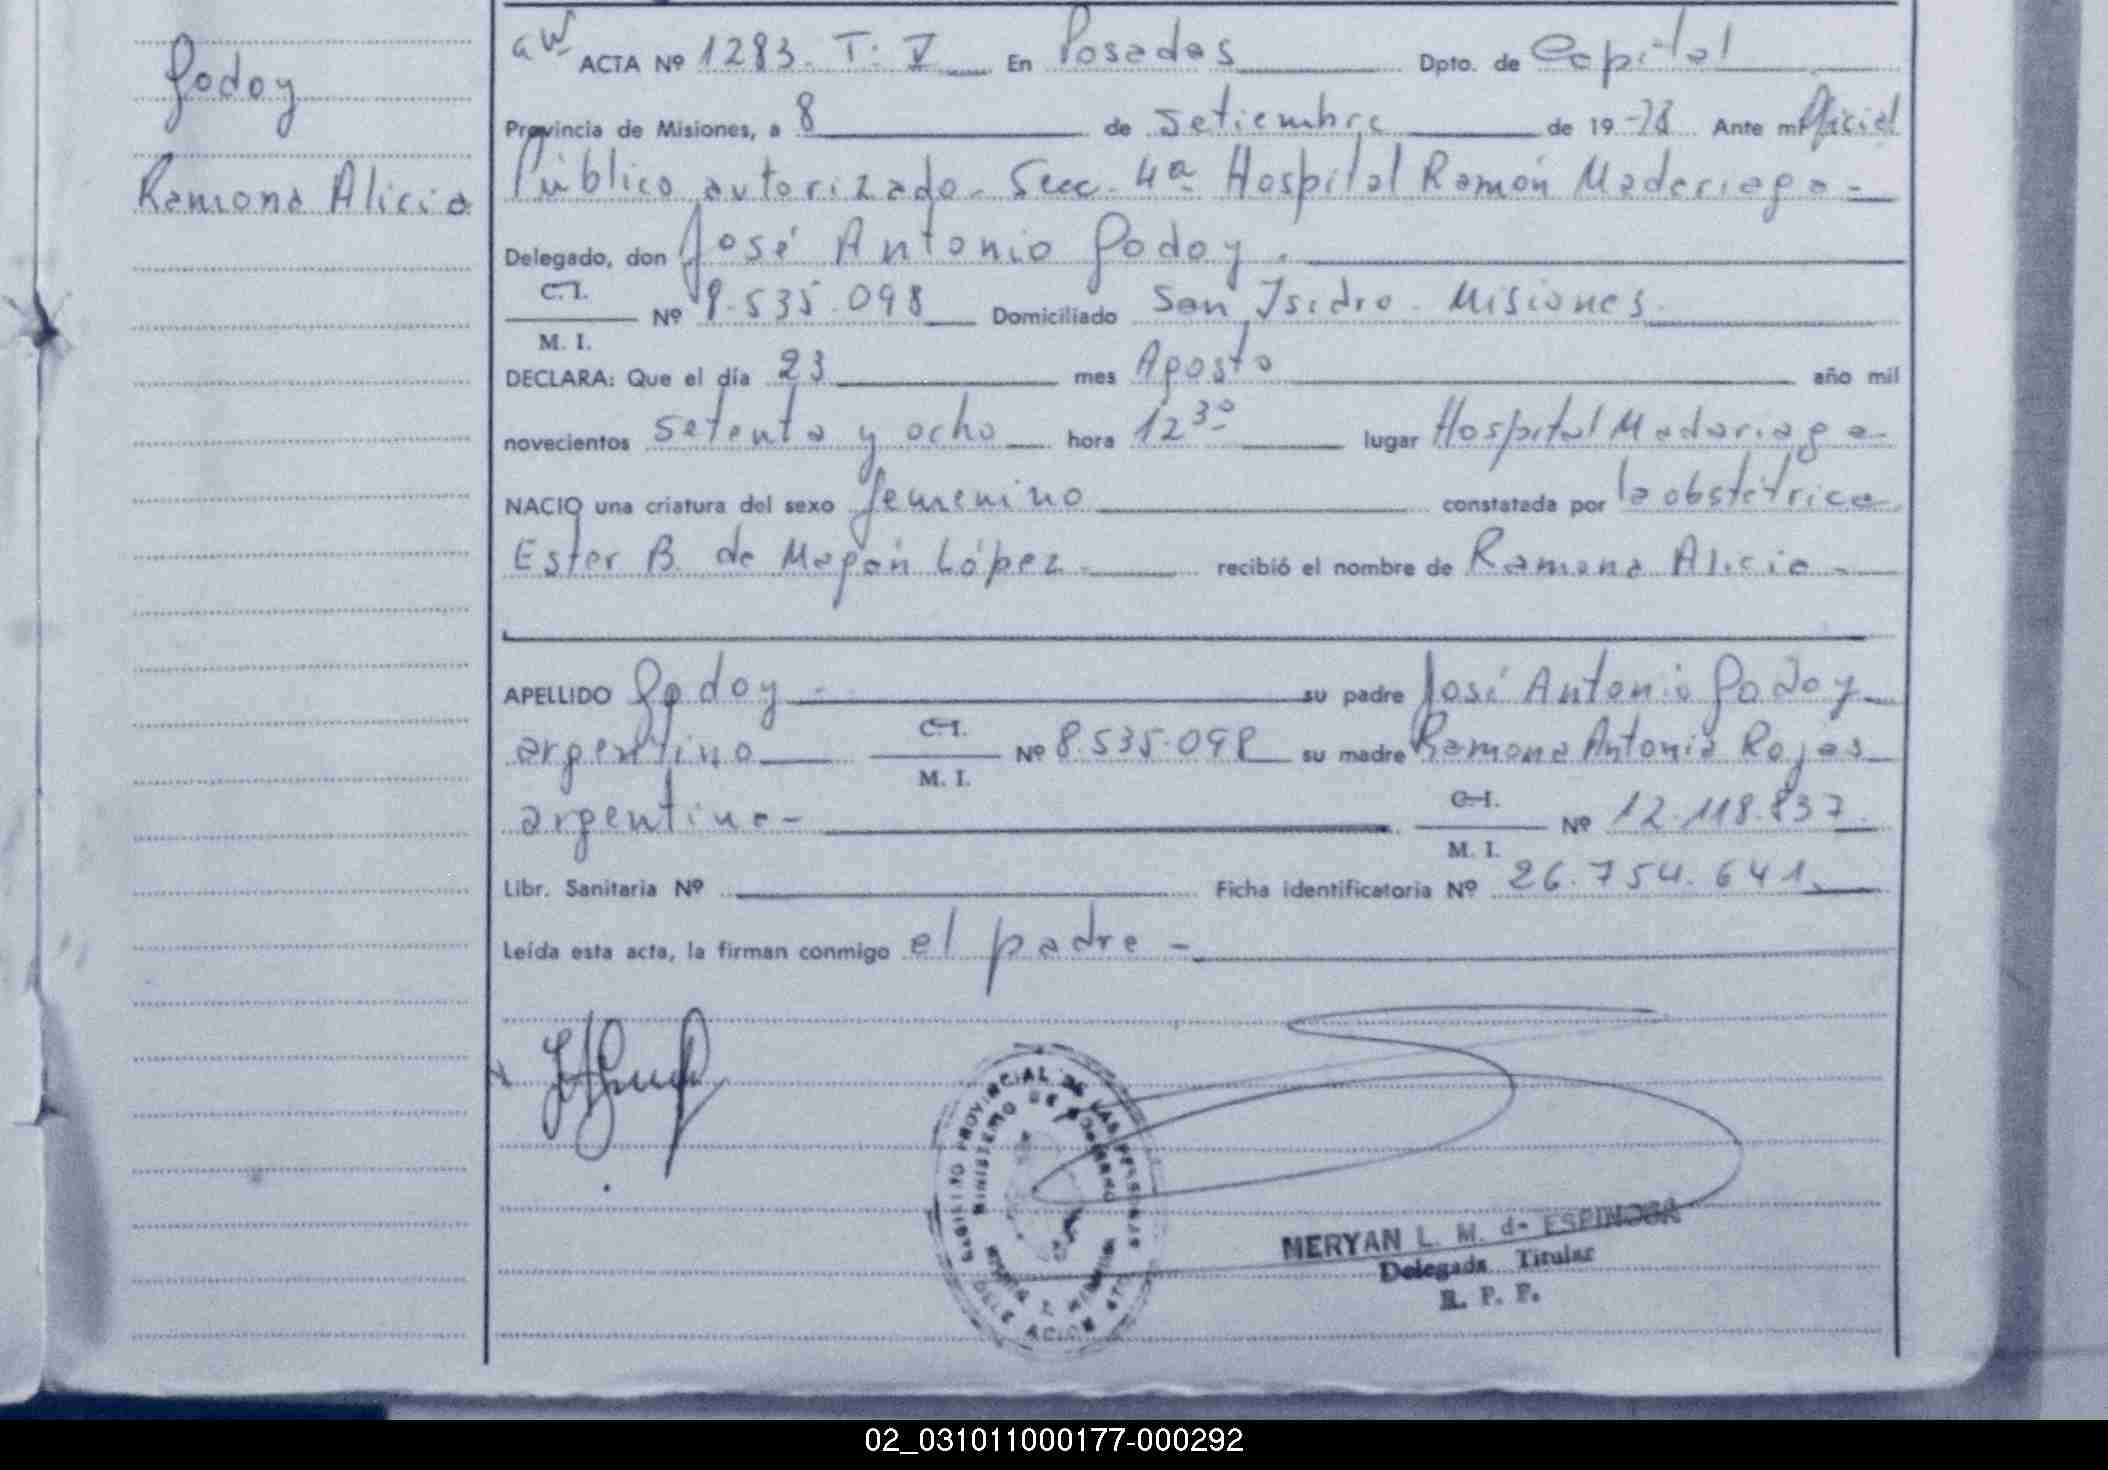 Godoy
Ramona Alicia
ACTA Nº 1283. T. V En Posadas Dpto. de Capital
Provincia de Misiones, a 8 de Setiembre de 19 78 Ante mí Oficial
Público autorizado - Secc. 4a Hospital Ramón Madariaga -
Delegado, don José Antonio Godoy.
C.I.
M. I.
Nº 8.535.098 Domiciliado San Isidro - Misiones
DECLARA: Que el día 23 mes Agosto año mil
novecientos setenta y ocho hora 12 30 lugar Hospital Madariaga -
NACIO una criatura del sexo femenino constatada por la obstétrica
Ester B. de Magán López - recibió el nombre de Ramona Alicia -
APELLIDO Godoy - su padre José Antonio Godoy
argentino C.I. M. I. Nº 8.535.098 su madre Ramona Antonia Rojas
argentina - C.I. M. I. Nº 12.118.837.
Libr. Sanitaria Nº Ficha identificatoria Nº 26.754.641.
Leída esta acta, la firman conmigo el padre -
PROVINCIAL DE LAS PERSONAS
MINISTERIO DE GOBIERNO
MERYAN L. M. de ESPINOSA
Delegada Titular
R. P. P.
02_031011000177-000292